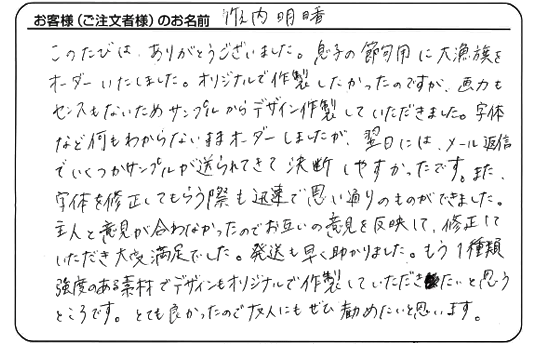 お客様（ご注文者様）のお名前 竹内明晴
このたびは、ありがとうございました。息子の節句用に大漁旗を
オーダーいたしました。オリジナルで作製したかったのですが、画力も
センスもないためサンプルからデザイン作製していただきました。字体
など何もわからないままオーダーしましたが、翌日には、メール返信
でいくつかサンプルが送られてきて決断しやすかったです。また、
字体を修正してもらう際も迅速で思い通りのものができました。
主人と意見が合わなかったのでお互いの意見を反映して、修正して
いただき大変満足でした。発送も早く助かりました。もう1種類
強度のある素材でデザインもオリジナルで作製していただきたいと思う
ところです。とても良かったので友人にもぜひ勧めたいと思います。